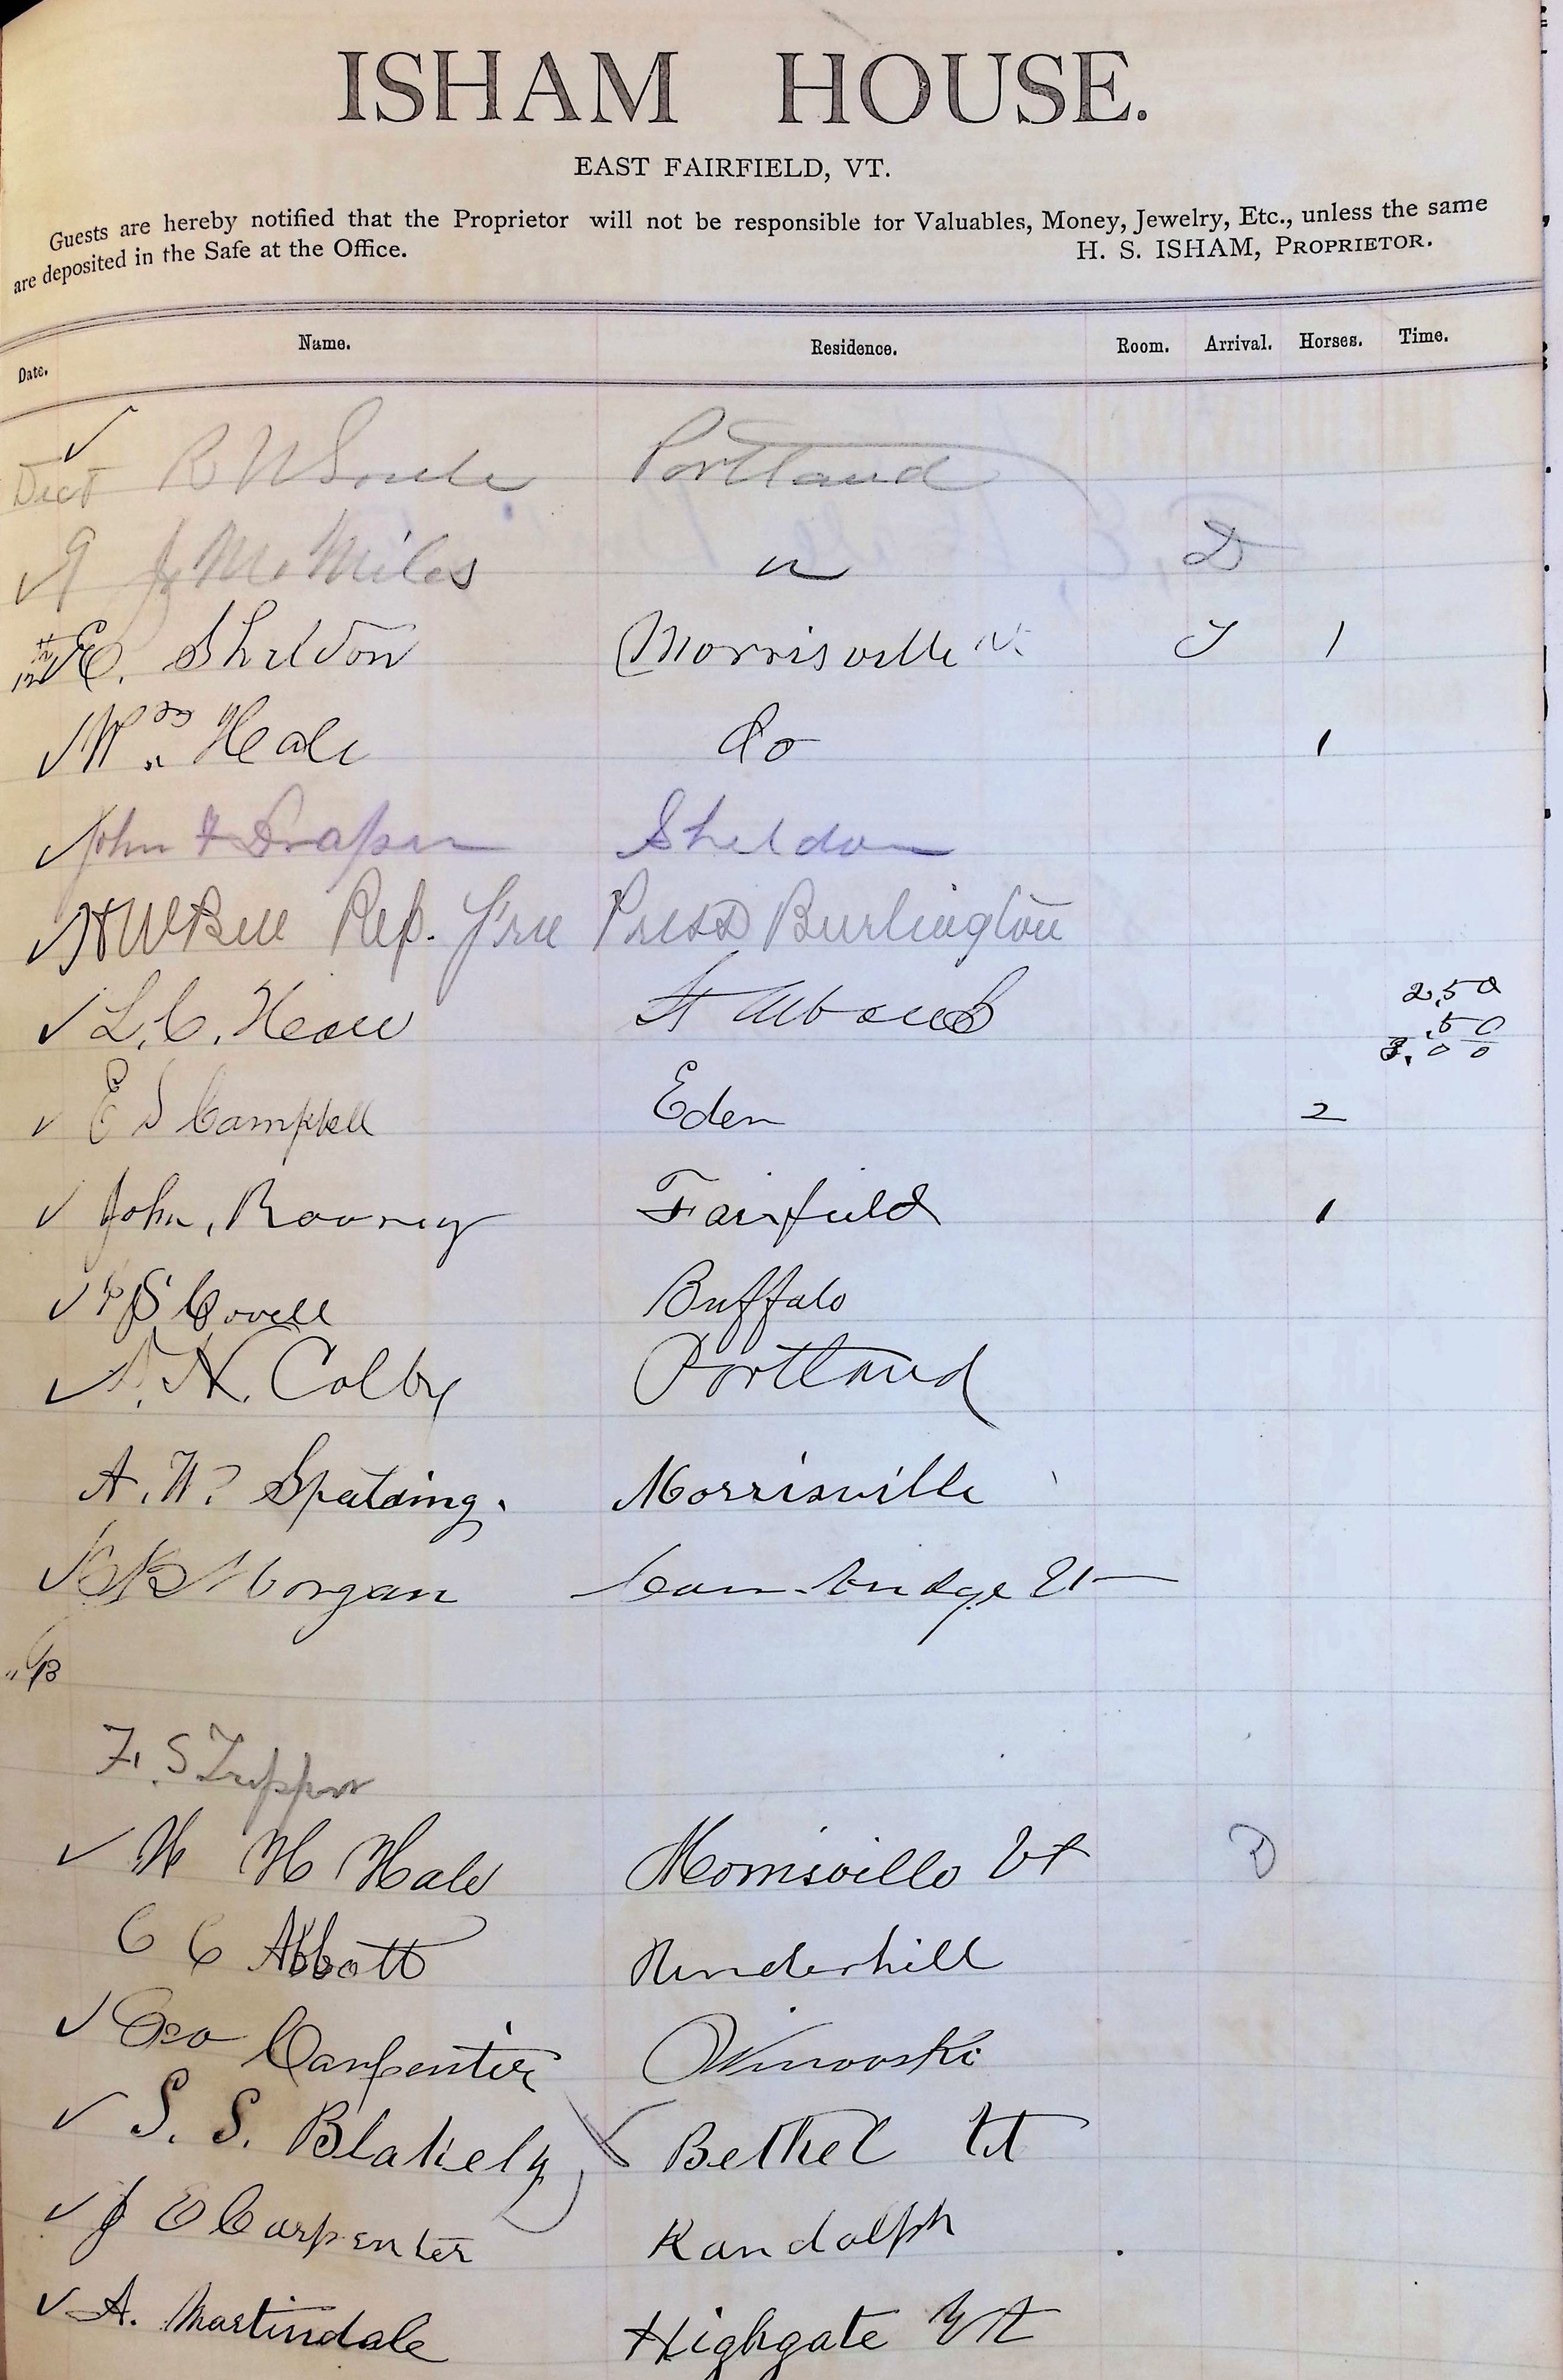 ISHAM HOUSE.
EAST FAIRFIELD, VT.
Guests are hereby notified that the Proprietor will not be responsible for Valuables, Money, Jewelry, Etc., unless the same
are deposited in the Safe at the Office. H. S. ISHAM, PROPRIETOR.
Date. Name. Residence. Room. Arrival. Horses. Time.
✓ R W Soule Portland
✓ 9 Miles " D
E. Sheldon Morrisville Vt 1
✓ Wm Heale do 1
✓ John Draper Sheldon
✓ H W Bell Rep. Free Press Burlington
✓ L. C. St Albans 2,50
.50
3.00
✓ E S Campbell Eden 2
✓ John, Rooney Fairfield 1
✓ S Covell Buffalo
✓ N. Colby Portland
A. W. Spalding. Morrisville
✓ Morgan Cambridge Vt
" 13
F. S Tupper
✓ W H Hale Morrisville Vt D
C C Abbott Underhill
✓ Geo Carpenter Winooski
✓ S. S. Blakely Bethel Vt
✓ J E Carpenter Randolph
✓ A. Martindale Highgate Vt